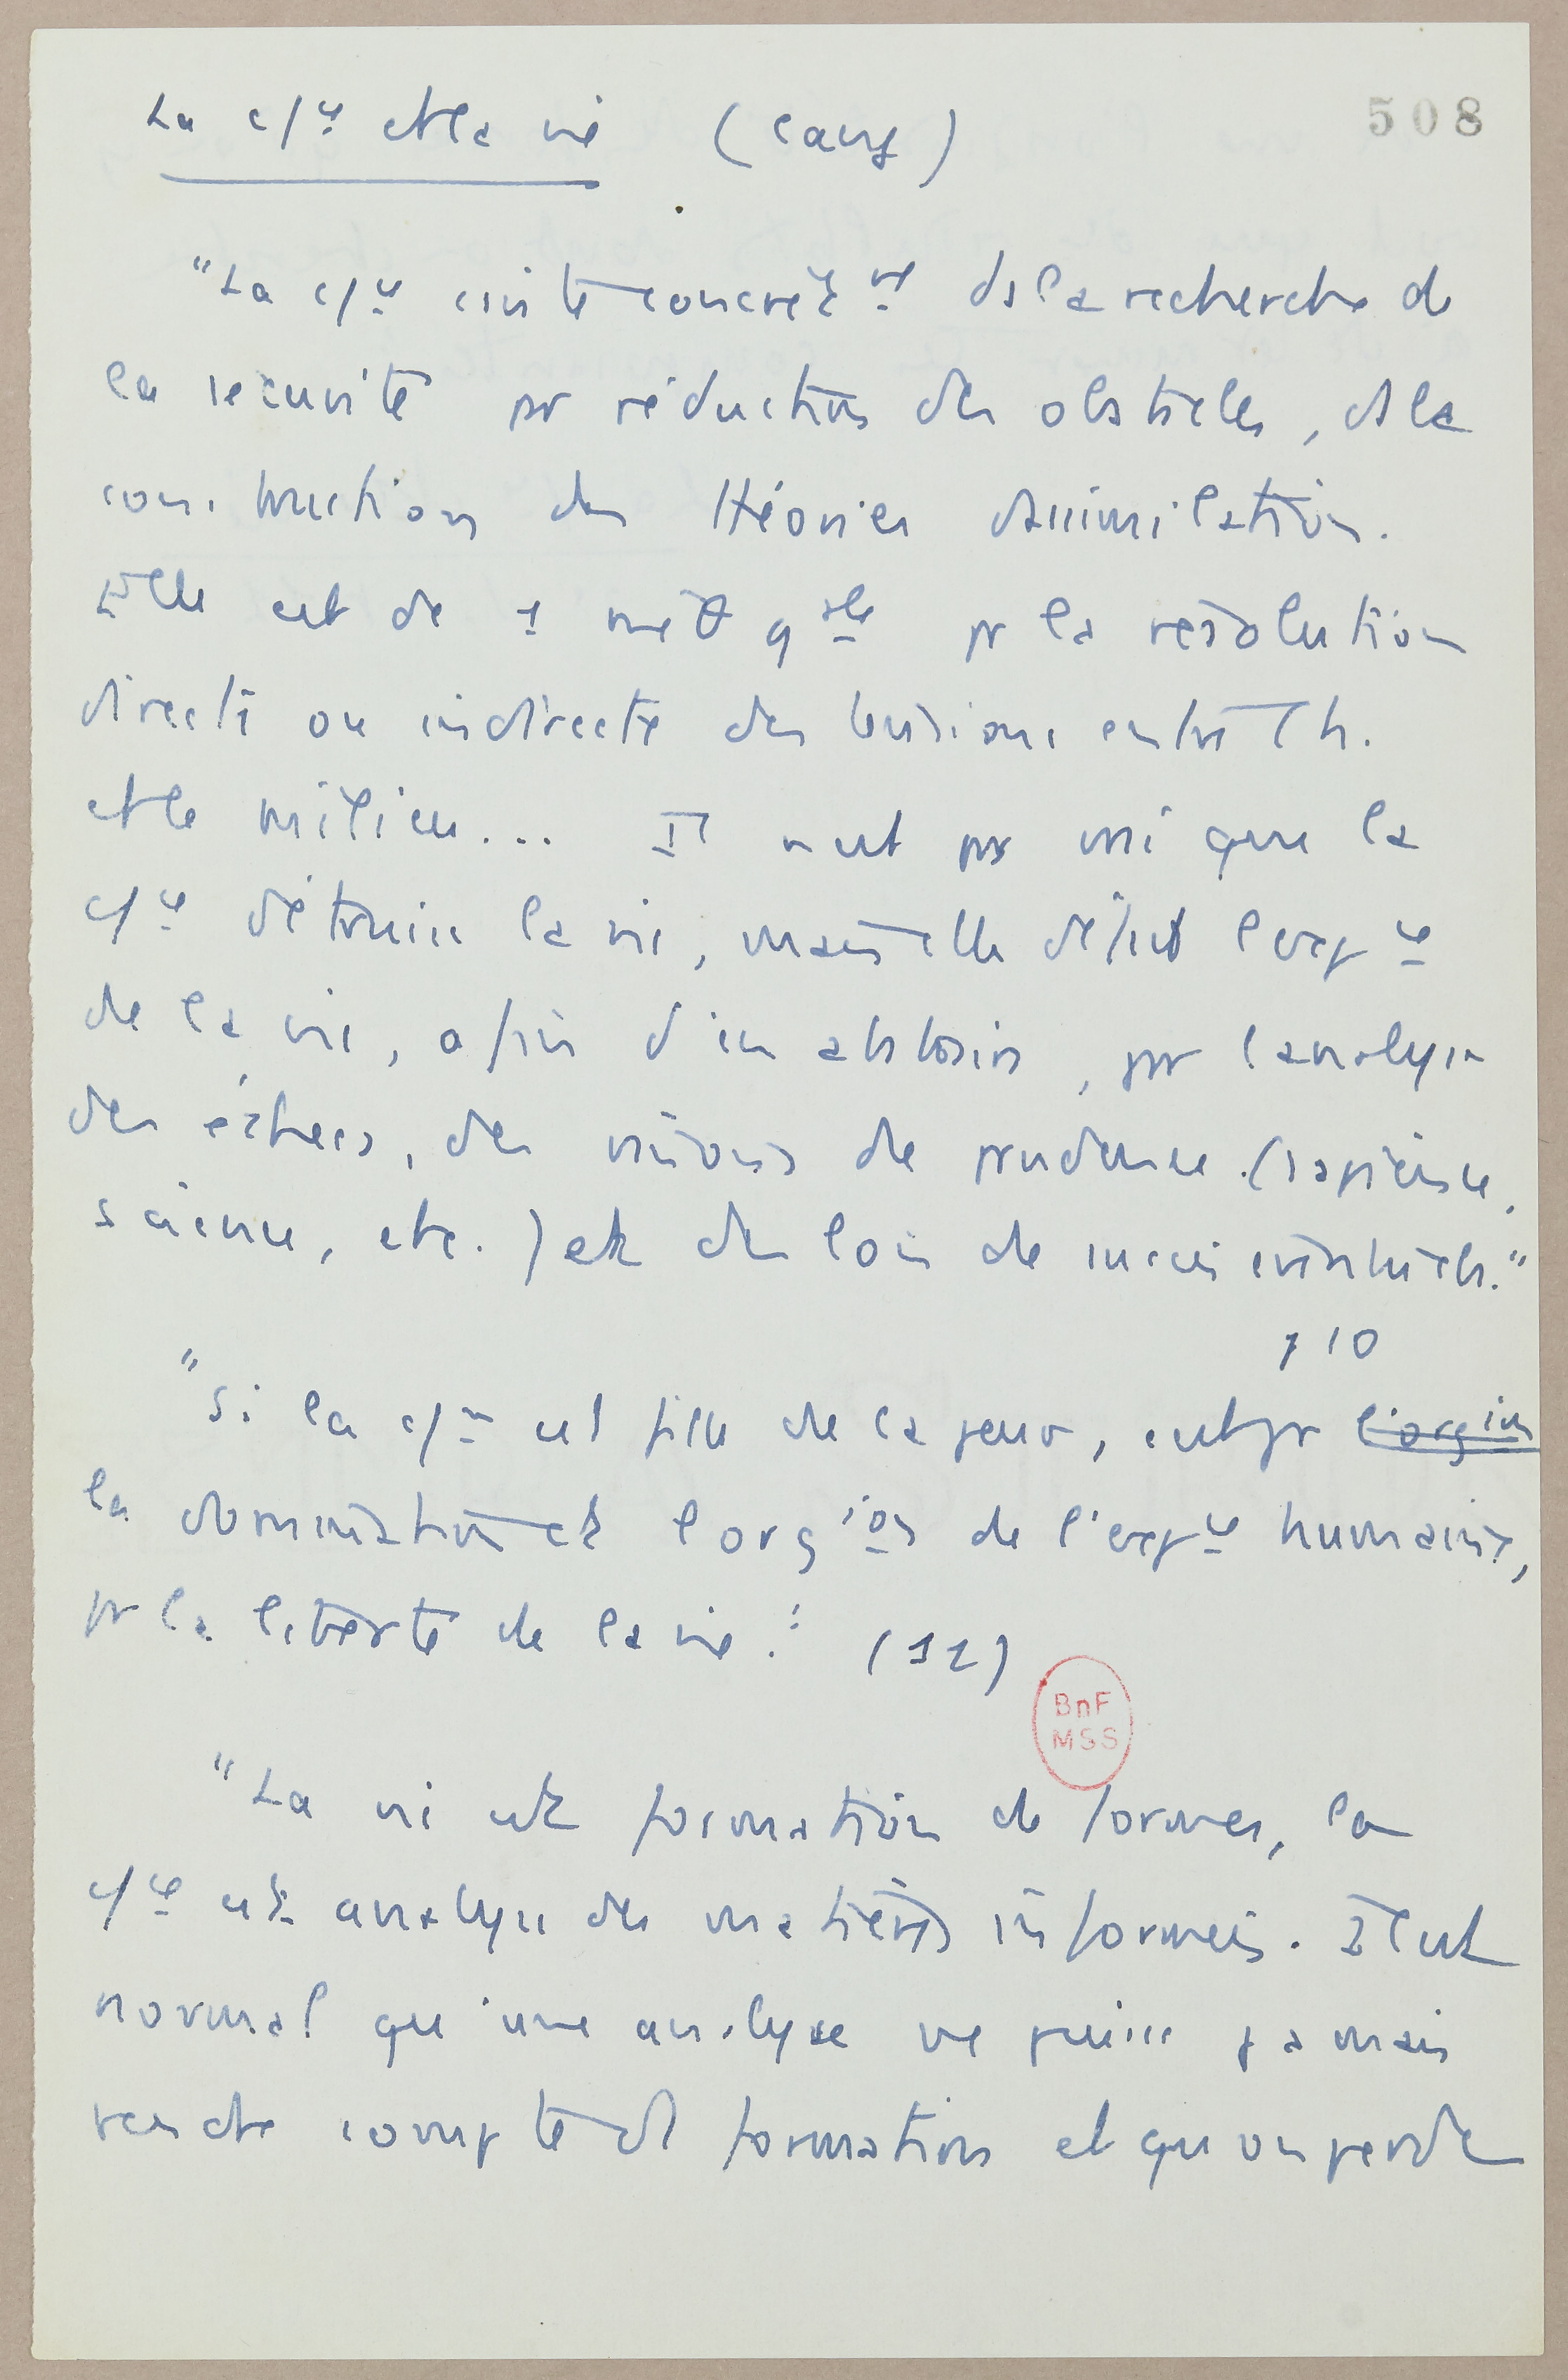 La c/ce et la vie (Cang)
508
"La c/ce consiste concrètt ds la recherche de
la sécurité par réduction des obstacles, ds la
construction des théories d'assimilation.
Elle est dc 1 méth gale pr la résolution
directe ou indirecte des tensions entre l'h.
et le milieu... Il n'est pas vrai que la
c/ce détruise la vie, mais elle défait l'expce
de la vie, afin d'en abstraire, par l'analyse
des échecs, des raisons de prudence (sapience,
science, etc.) et des lois de succès éventuels."
p 10
"Si la c/ce est fille de la peur, c'est pr l'orgion
la domination et l'orgion de l'expce humaine,
pr la liberté de la vie." (12)
BnF
MSS
"La vie est formation de formes, la
c/ce est analyse des matières informées. Il est
normal qu'une analyse ne puisse jamais
rendre compte d'1 formation et qu'on perde